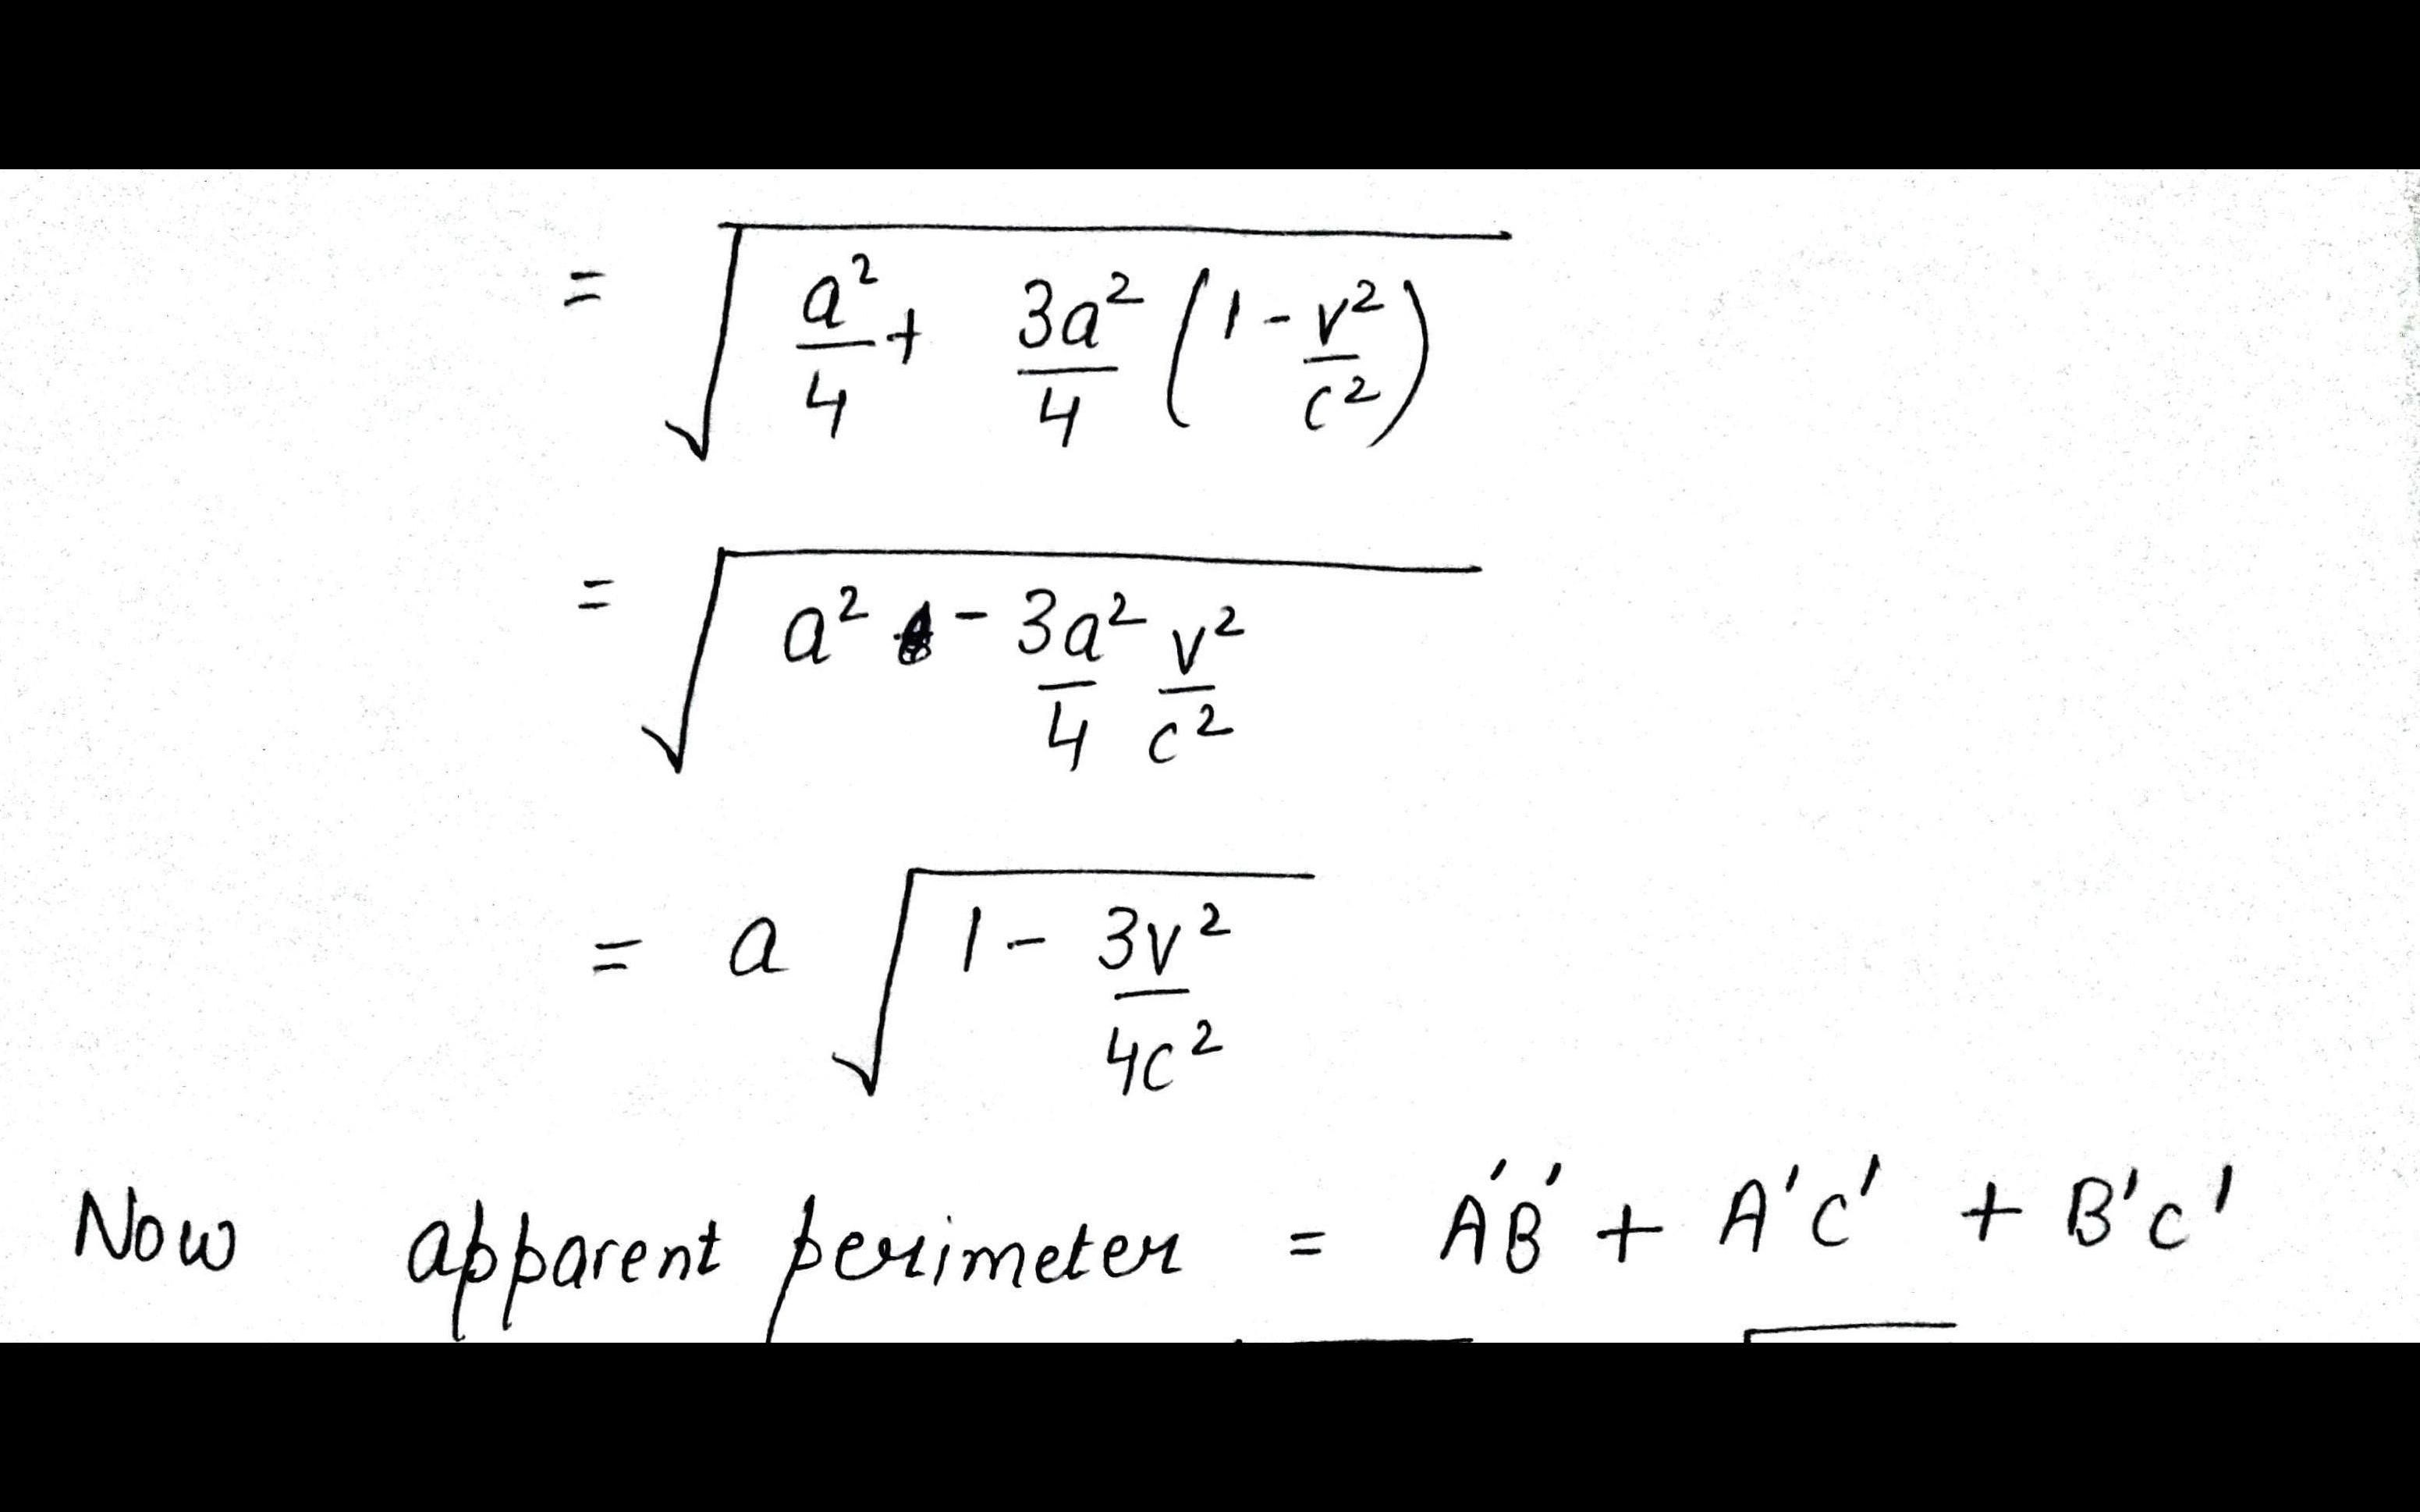 = √(a²/4 + 3a²/4 (1 - v²/c²))
= √(a² - 3a²/4 v²/c²)
= a √(1 - 3v²/4c²)
Now apparent perimeter = A'B' + A'C' + B'C'